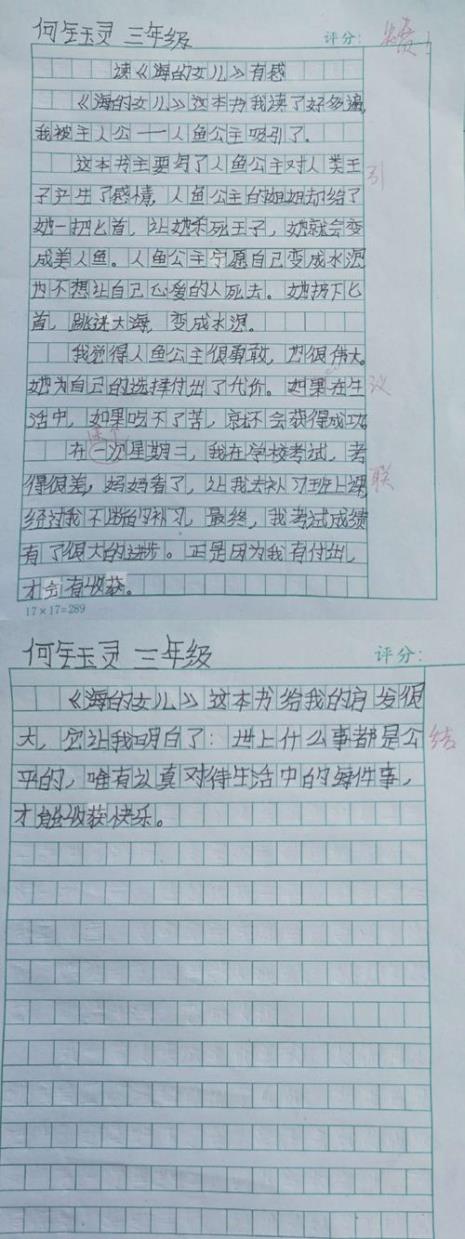 何钰灵 三年级
评分：
读《海的女儿》有感
《海的女儿》这本书我读了好多遍，
我被主人公——人鱼公主吸引了。
这本书主要写了人鱼公主对人类王
引
子产生了感情，人鱼公主的姐姐却给了
她一把匕首，让她杀死王子，她就会变
成美人鱼。人鱼公主宁愿自己变成水泡
也不想让自己心爱的人死去。她扔下匕
首，跳进大海，变成水泡。
我觉得人鱼公主很勇敢，也很伟大。
她为自己的选择付出了代价。如果在生
议
活中，如果吃不了苦，就不会获得成功。
在一次星期三，我在学校考试，考
得很差，妈妈看了，让我去补习班上课
联
经过我不断的补习，最终，我考试成绩
有了很大的进步。正是因为我有付出，
才会有收获。
17×17=289
何钰灵 三年级
评分：
《海的女儿》这本书给我的启发很
大，它让我明白了：世上什么事都是公
结
平的，唯有认真对待生活中的每件事，
才能收获快乐。